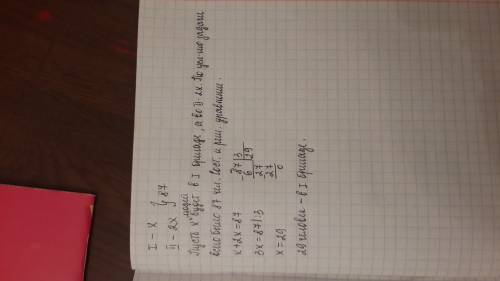 I - x } 87
II - 2x
Пусть x людей будет в I бригаде, а во II - 2x. По усл-ию задачи
всего было 87 чел. Сост. и реш. уравнение.
x+2x=87
3x=87|:3
x=29
-87|3
6 29
-27
27
0
29 человек - в I бригаде.